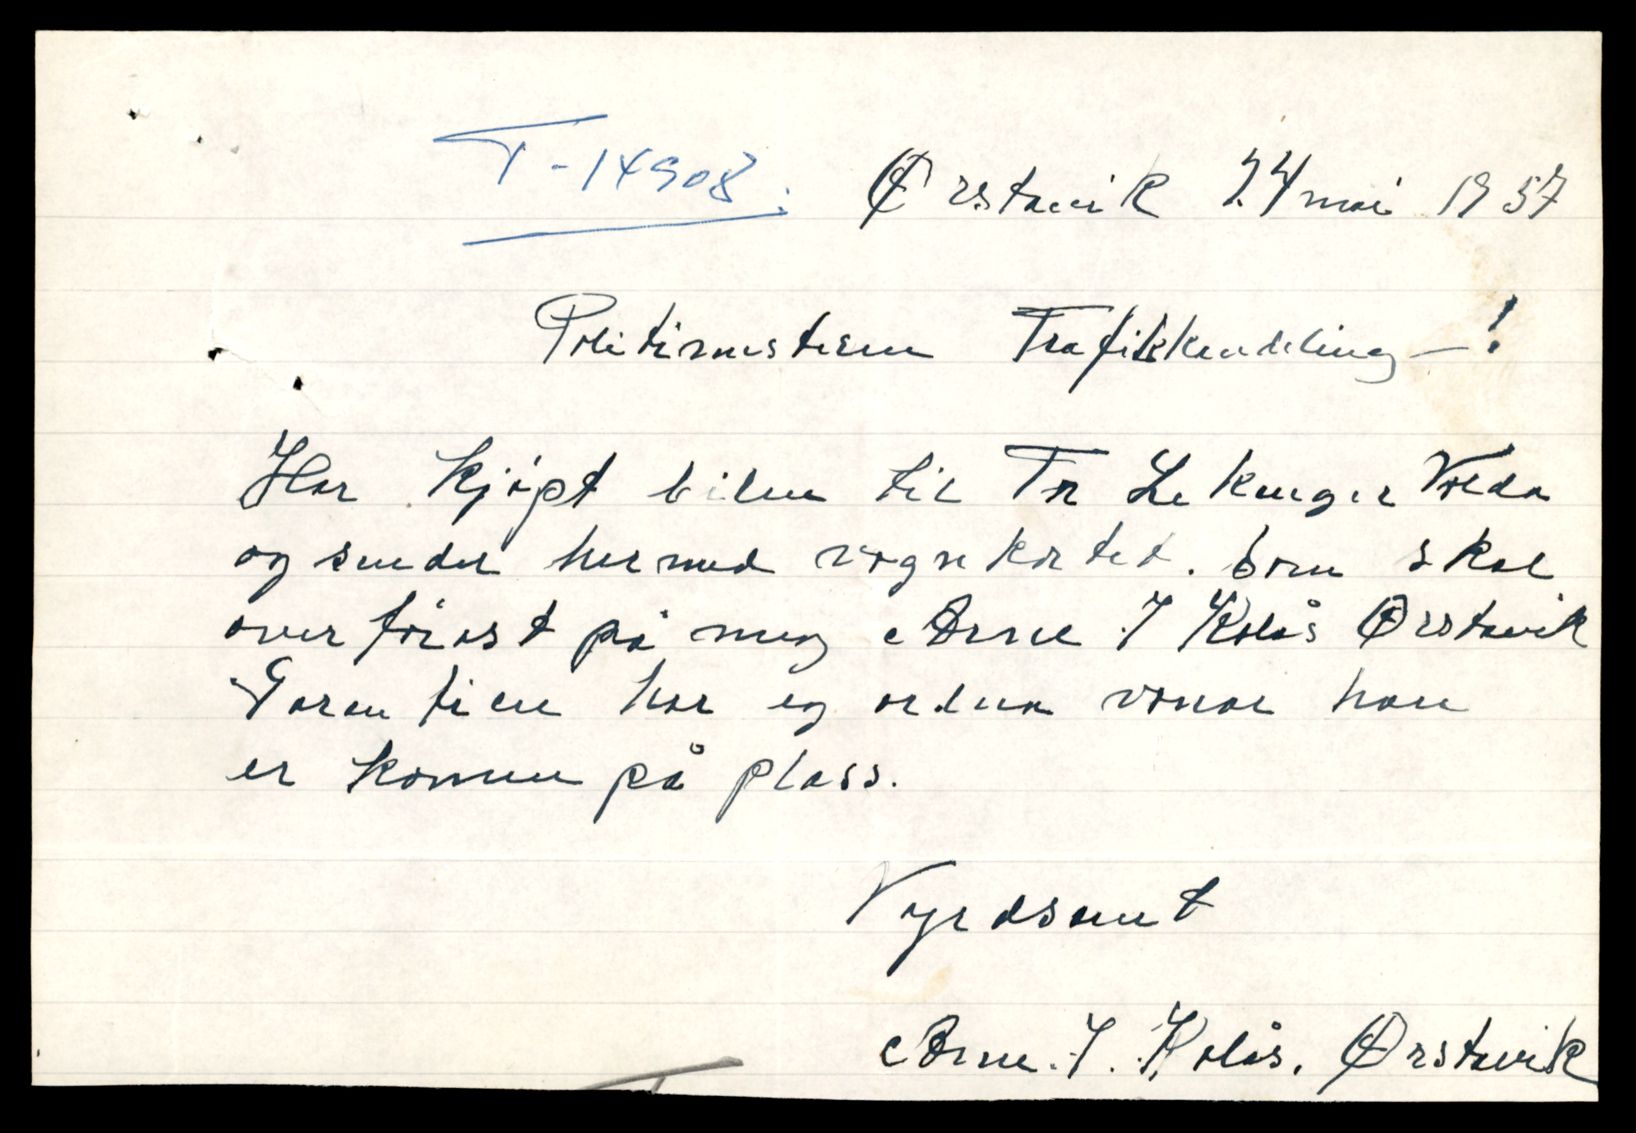 T-14908.
Ørstavik 24 mai 1957
Politimesteren Trafikkavdeling -!
Har kjøpt bilen til Fr Volda
og sender hermed vognkortet. som skal
overførast på meg Arne J Kolås Ørstavik
Garantien har eg ordna vonar han
er komen på plass.
Vyrdsamt
Arne. J. Kolås. Ørstavik